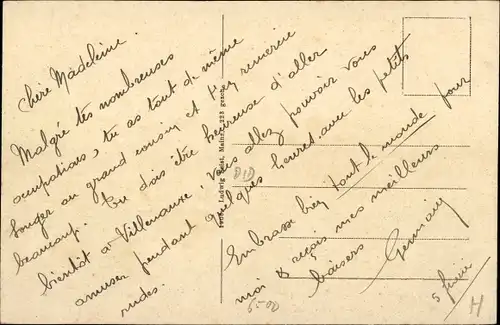 Chère Madeleine.
Malgré tes nombreuses
occupations, tu as tout de même
songer au grand cousin et t'en remercie
beaucoup. Tu dois être heureuse d'aller
bientôt à Villenauxe, vous allez pouvoir vous
amuser pendant quelques heures avec les petits
rudes.
Embrasse bien tout le monde pour
moi & reçois mes meilleurs
baisers
Germain
5 février
Ludwig Feist, Mainz
DID
6-00
H